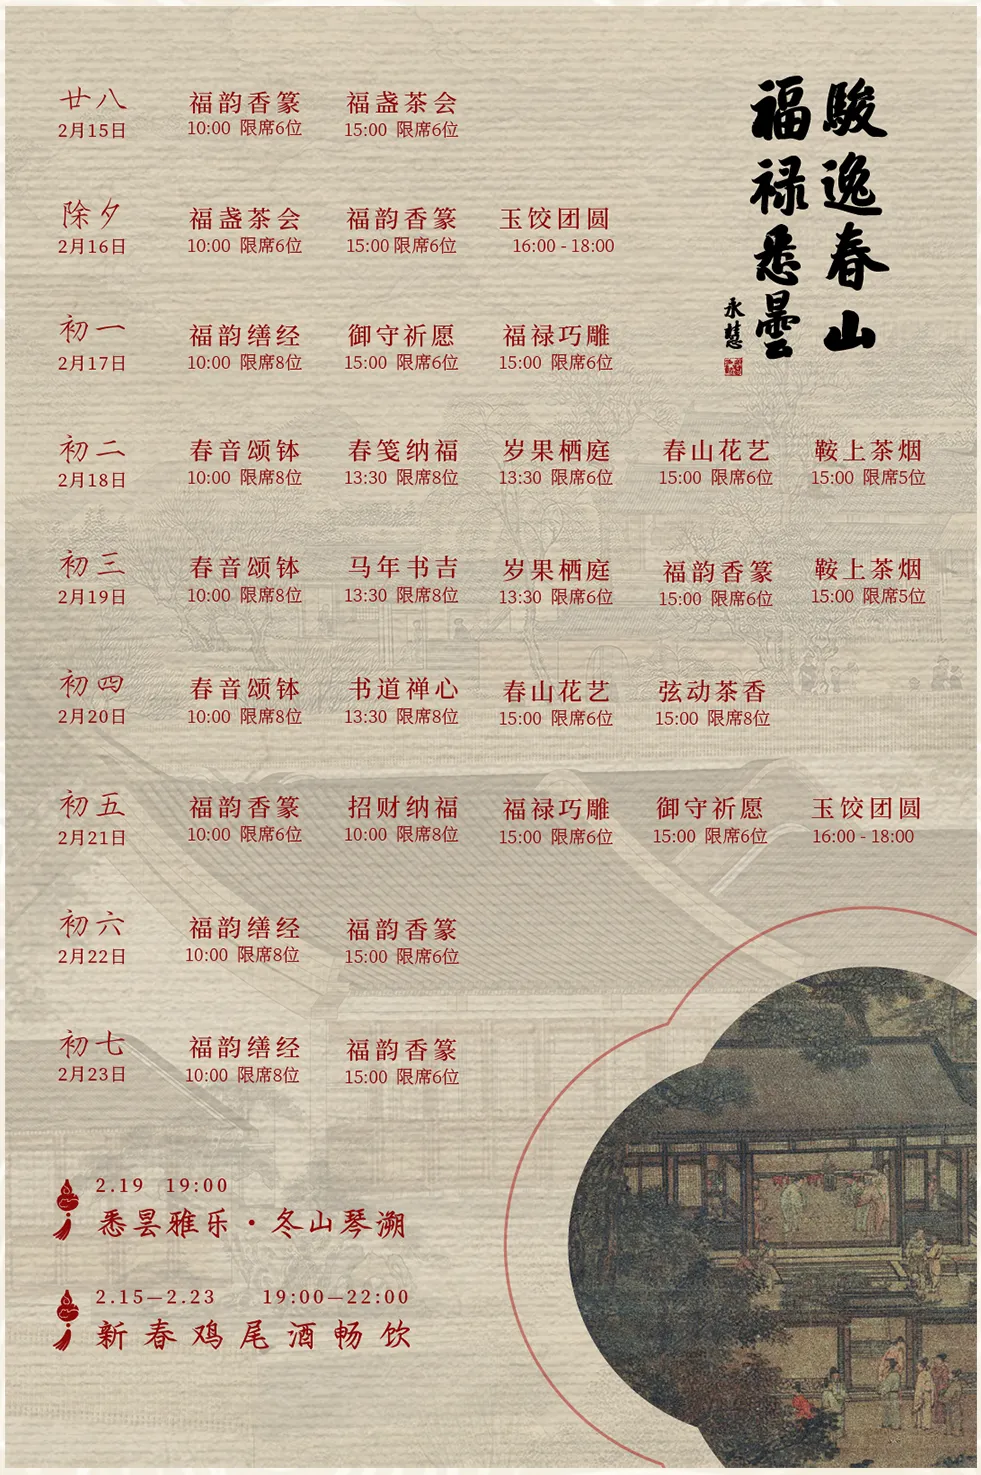 駿逸春山
福禄悉曇
永慧
廿八
2月15日
福韵香篆
10:00 限席6位
福盏茶会
15:00 限席6位
除夕
2月16日
福盏茶会
10:00 限席6位
福韵香篆
15:00 限席6位
玉饺团圆
16:00 - 18:00
初一
2月17日
福韵缮经
10:00 限席8位
御守祈愿
15:00 限席6位
福禄巧雕
15:00 限席6位
初二
2月18日
春音颂钵
10:00 限席8位
春笺纳福
13:30 限席8位
岁果栖庭
13:30 限席6位
春山花艺
15:00 限席6位
鞍上茶烟
15:00 限席5位
初三
2月19日
春音颂钵
10:00 限席8位
马年书吉
13:30 限席8位
岁果栖庭
13:30 限席6位
福韵香篆
15:00 限席6位
鞍上茶烟
15:00 限席5位
初四
2月20日
春音颂钵
10:00 限席8位
书道禅心
13:30 限席8位
春山花艺
15:00 限席6位
弦动茶香
15:00 限席8位
初五
2月21日
福韵香篆
10:00 限席6位
招财纳福
10:00 限席8位
福禄巧雕
15:00 限席6位
御守祈愿
15:00 限席6位
玉饺团圆
16:00 - 18:00
初六
2月22日
福韵缮经
10:00 限席8位
福韵香篆
15:00 限席6位
初七
2月23日
福韵缮经
10:00 限席8位
福韵香篆
15:00 限席6位
2.19 19:00
悉昙雅乐·冬山琴溯
2.15—2.23 19:00—22:00
新春鸡尾酒畅饮